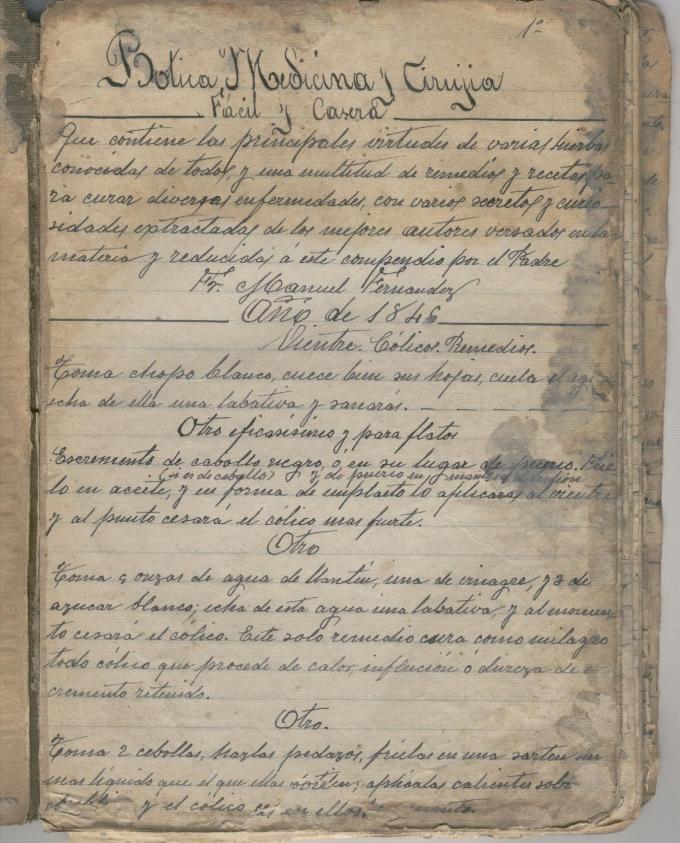 1ª
Botica, Medicina y Cirujia
Fácil y Casera
Que contiene las principales virtudes de varias hierbas
conocidas de todos, y una multitud de remedios y recetas, pa-
ra curar diversas enfermedades, con varios secretos y curio-
sidades extractadas de los mejores autores versados en la
materia y reducidas á este compendio por el Padre
Fr. Manuel Fernandez
Año de 1846
Vientre. Cólicos. Remedios.
Toma chopo blanco, cuece bien sus hojas, cuela el agua,
echa de ella una labativa y sanarás.
Otro eficasisimo y para flatos
Escremento de caballo negro, ó en su lugar de puerco. Frie-
(si es de caballo) y de puerco en
lo en aceite, y en forma de emplasto lo aplicaras al vientre
y al punto cesará el cólico mas fuerte.
Otro
Toma 5 onzas de agua de llantén, una de vinagre, y 3 de
azucar blanco; echa de esta agua una labativa, y al momen-
to cesará el cólico. Este solo remedio cura como milagro
todo cólico que procede de calor, influción ó dureza de e-
cremento retenido.
Otro.
Toma 2 cebollas, hazlas pedazos, frielas en una sarten sin
mas liquido que el que ellas vierten; aplicalas calientes sobr
y el cólico